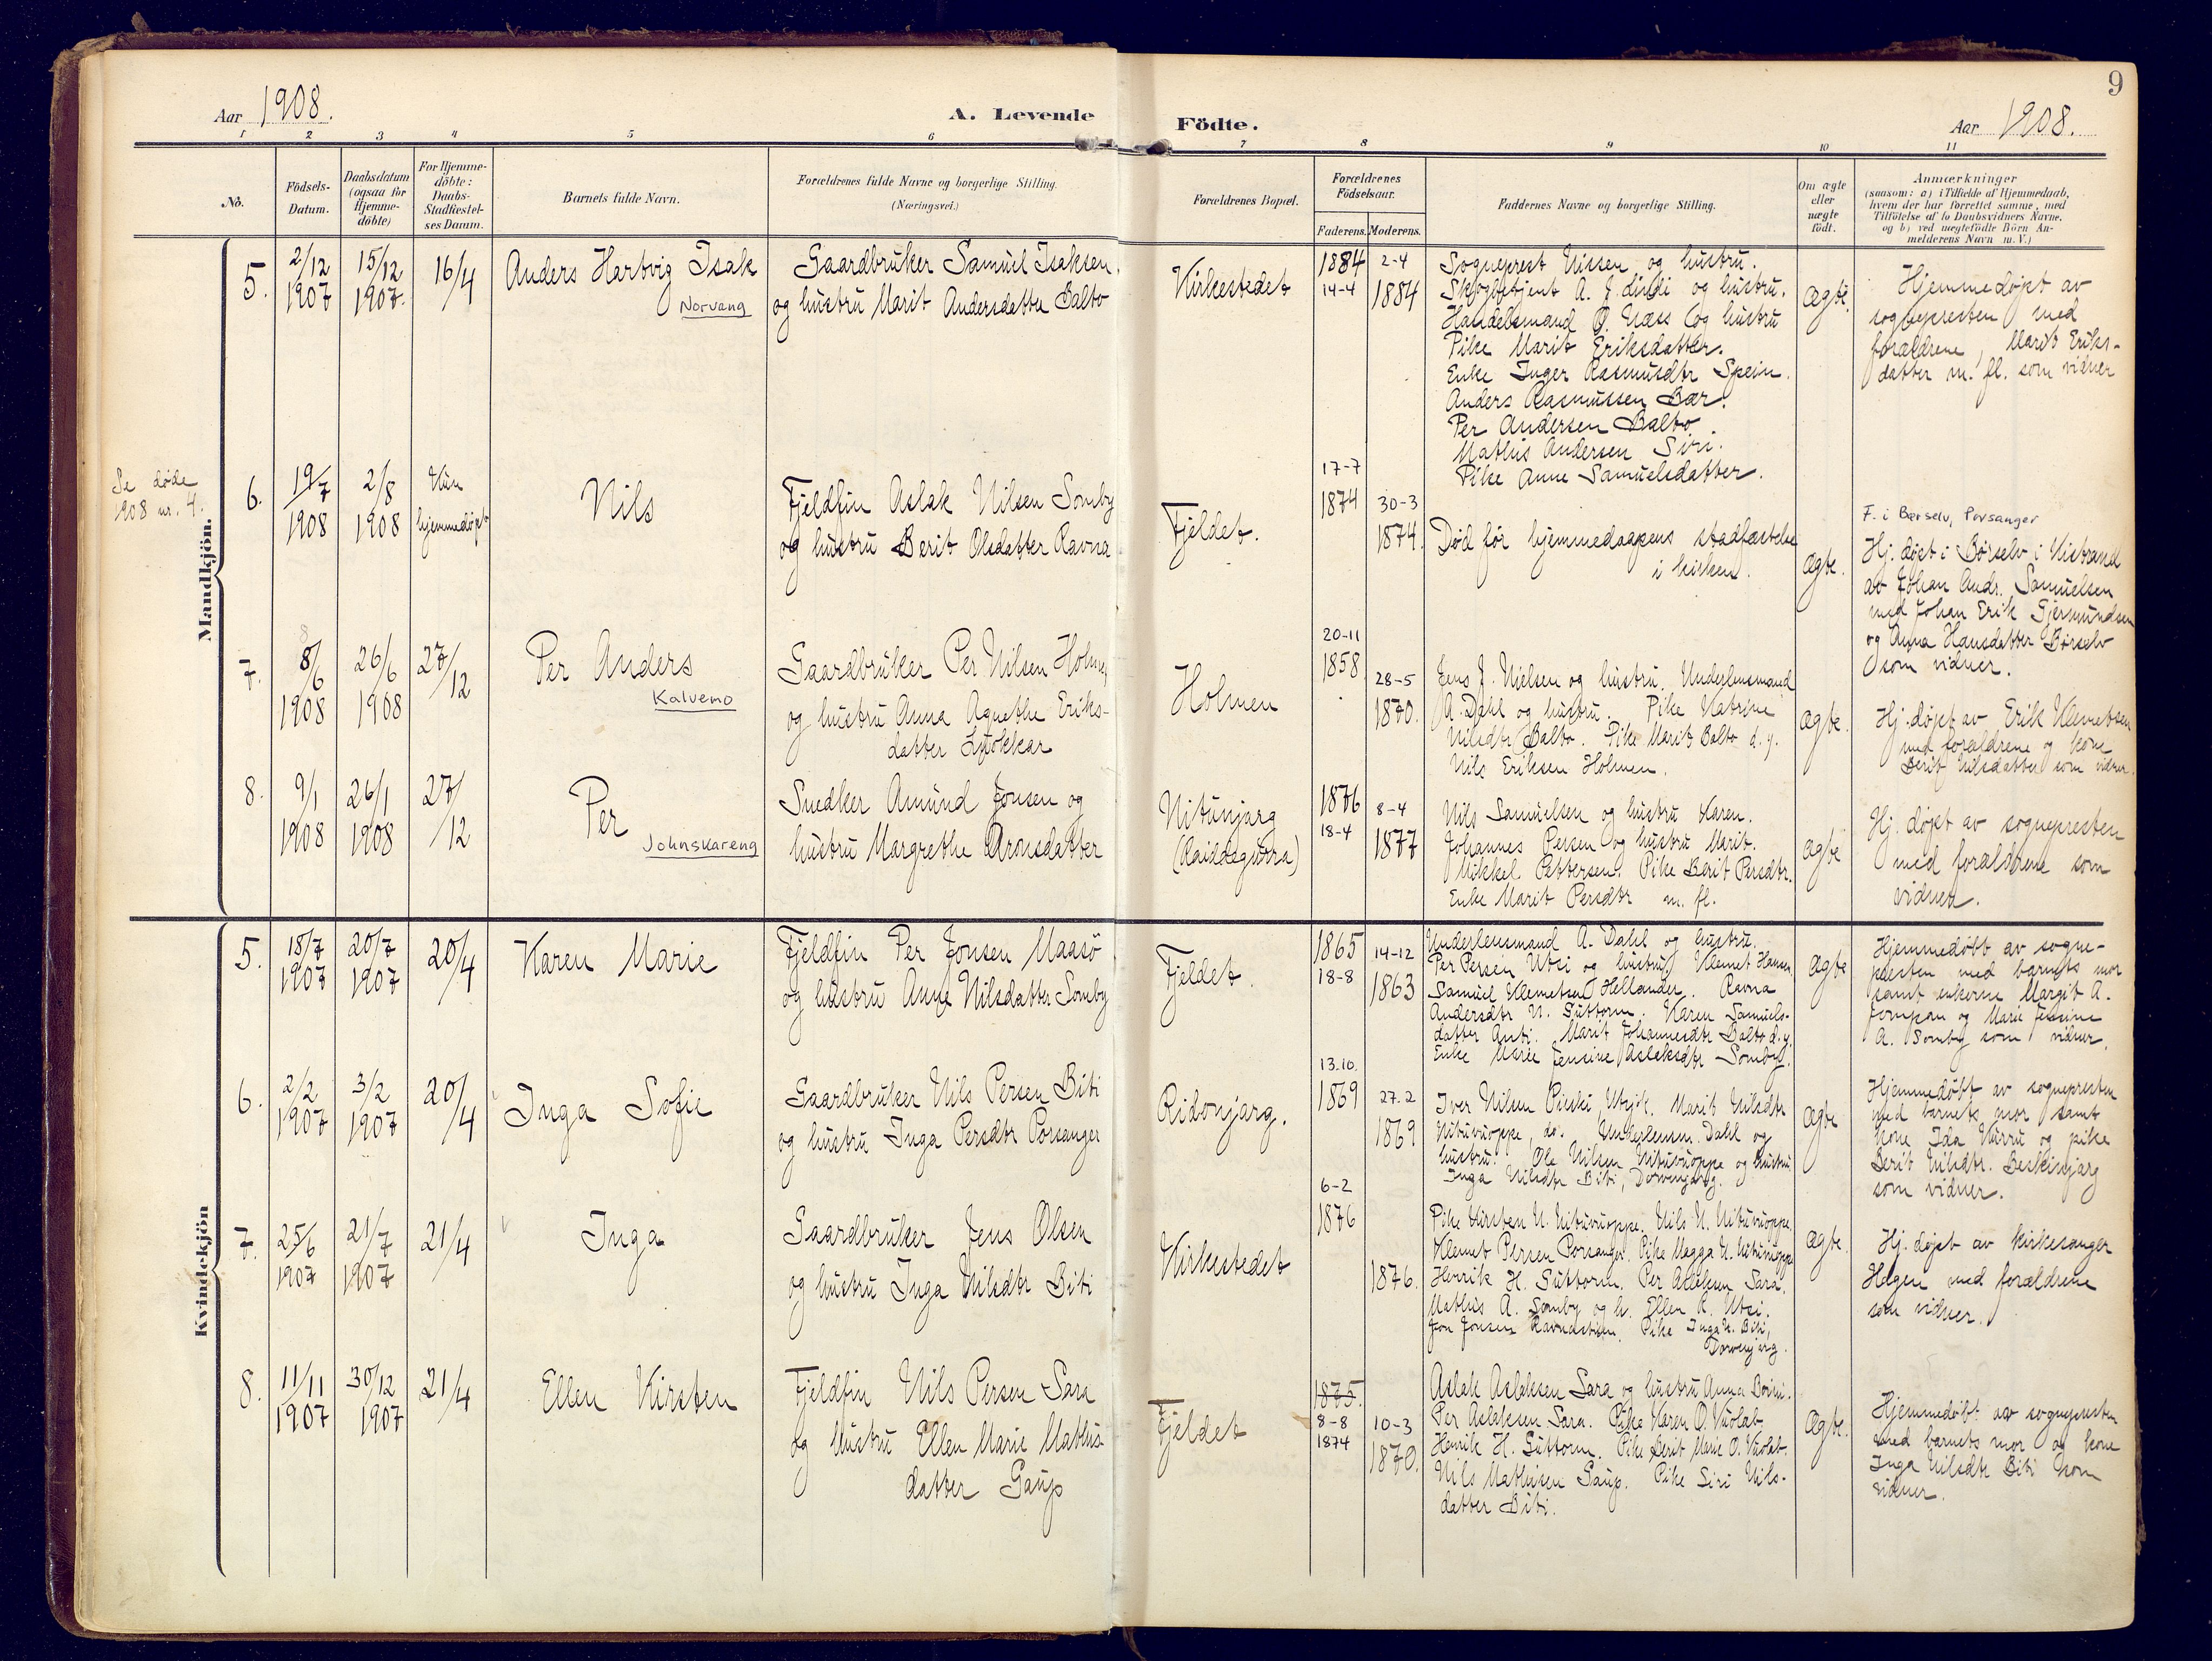 9
Aar 1908.
A. Levende Födte.
Aar 1908.
1 2 3 4 5 6 7 8 9 10 11
No.
Födsels-
Datum.
Daabsdatum
(ogsaa for
Hjemme-
döbte)
For Hjemme-
döbte:
Daabs-
Stadfæstel-
ses Datum.
Barnets fulde Navn.
Forældrenes fulde Navne og borgerlige Stilling.
(Næringsvei.)
Forældrenes Bopæl.
Forældrenes
Födselsaar.
Faderens. Moderens.
Faddernes Navne og borgerlige Stilling.
Om ægte
eller
uægte
födt.
Anmærkninger
(saasom: a) i Tilfælde af Hjemmedaab,
hvem der har forrettet samme, med
Tilföielse af to Daabsvidners Navne.
og b) ved uægtefödte Börn An-
melderens Navn m. V.)
Mandkjön.
5.
2/12
1907
15/12
1907.
16/4
Anders Hartvig Isak
Norvang
Gaardbruker Samuel Isaksen
og hustru Marit Andersdatter Balto
Kirkestedet
1884
14-4
2-4
1884
Sogneprest Nissen og hustru.
A. J. og hustru.
Handelsmand O. Næss og hustru
Pike Marit Eriksdatter.
Enke Inger Rasmusdtr Spein.
Anders Rasmussen Bær.
Per Andersen Balto
Mathis Andersen Siri.
Pike Anne Samuelsdatter.
ægte.
Hjemmedøpt av
sognepresten med
forældrene, Marit Eriks-
datter m. fl. som vidner
Se døde
1908 nr. 4.
6.
19/7
1908
2/8
1908
Kun
hjemmedøpt
Nils
Fjeldfin Aslak Nilsen Somby
og hustru Berit Olsdatter Ravna
Fjeldet.
17-7
1874
30-3
1874.
Død før hjemmedaapens stadfæstelse
i kirken.
ægte.
F. i Børselv, Porsanger
Hj. døpt i Børselv i Kistrand
av Johan Andr. Samuelsen
med Johan Erik Gjermundsen
og Anna Hansdatter Børselv
som vidner.
7.
8/6
1908
26/6
1908
27/12
Per Anders
Kalvemo
Gaardbruker Per Nilsen Holmen,
og hustru Anna Agnethe Eriks-
datter
Holmen
20-11
1858
28-5
1870.
Jens J. Nielsen og hustru. Underlensmand
A. Dahl og hustru. Pike Katrine
Nilsdtr Balto. Pike Marit Balto d. y.
Nils Eriksen Holmen.
ægte.
Hj. døpt av Erik Klemetsen
med forældrene og kone
Berit Nilsdatter som vidner.
8.
9/1
1908
26/1
1908
27/12
Per
Johnskareng
Snedker Amund Jonsen og
hustru Margrethe Aronsdatter
Nitunjarg
1876
18-4
8-4
1877
Nils Samuelsen og hustru Karen.
Johannes Persen og hustru Marit.
Mikkel Pettersen. Pike Berit Persdtr.
Enke Marit Persdtr m. fl.
ægte
Hj. døpt av sognepresten
med forældrene som
vidner.
Kvindekjön
5.
18/7
1907
20/7
1907
20/4
Karen Marie
Fjeldfin Per Jonsen Maasö
og hustru Anne Nilsdatter Somby
Fjeldet.
1865
18-8
14-12
1863
Underlensmand A. Dahl og hustru.
Per Persen Utsi og hustru. Klemet Hansen.
Samuel Klemetsen Hellander. Ravna
Andersdtr N. Suttorm. Karen Samuels-
datter Anti. Marit Johannesdtr Balto d. y.
Enke Marie Jensine Aslaksdtr Somby.
ægte
Hjemmedöbt av sogne-
presten med barnets mor
samt enkerne Margit A.
og Marie Jensine
A. Somby som vidner.
6.
2/2
1907
3/2
1907
20/4
Inga Sofie
Gaardbruker Nils Persen Biti
og hustru Inga Persdtr Porsanger
Ridonjarg.
13.10.
1869
27.2
1869
Iver Nilsen Pinski, Utsjok. Marit Nilsdtr
Nituvuoppe, do. Underlensm. Dahl og
hustru. Ole Nilsen Nituvuoppe og hustru
Inga Nilsdtr Biti, Dorvenjarg.
ægte
Hjemmedöbt av sognepresten
med barnets mor samt
kone Ida Nurru og pike
Berit Nilsdtr. Beskinjarg
som vidner.
7.
25/6
1907
21/7
1907
21/4
Inga
Gaardbruker Jens Olsen
og hustru Inga Nilsdtr Biti
Kirkestedet
6-2
1876
1876.
Pike Kirsten N. Nituvuoppe. Nils N. Nituvuoppe.
Klemet Persen Porsanger. Pike Magga N. Nituvuoppe
Henrik H. Suttorm. Per Aslaksen Sara.
Mathis A. Somby og h. Ellen K. Utsi.
Jon Jonsen Ravnastuen. Pike Inga N. Biti,
Dorvenjarg.
ægte.
Hj. døpt av kirkesanger
Hagen med forældrene
som vidner.
8.
11/11
1907
30/12
1907
21/4
Ellen Kirsten
Fjeldfin Nils Persen Sara
og hustru Ellen Marie Mathis-
datter Gaup
Fjeldet
1875.
8-8
1874
10-3
1870.
Aslak Aslaksen Sara og hustru Anna Boini.
Per Aslaksen Sara. Pike Karen O. Vuolab.
Henrik H. Suttorm. Pike Berit Marie O. Vuolab.
Nils Mathisen Gaup. Pike Siri Nils-
datter Biti.
ægte.
Hjemmedöbt av sognepresten
med barnets mor og kone
Inga Nilsdtr Biti som
vidner.